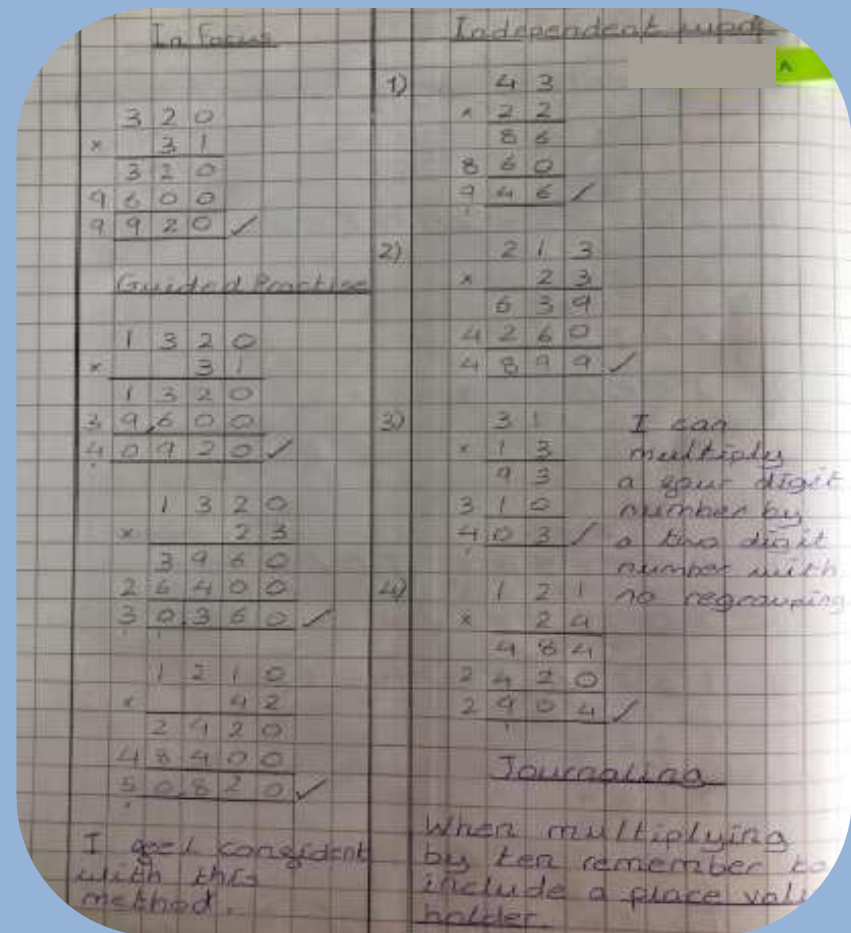 In Focus
3 2 0
× 3 1
3 2 0
9 6 0 0
9 9 2 0 ✓
Guided Practise
1 3 2 0
× 3 1
1 3 2 0
3 9,6 0 0
4 0 9 2 0 ✓
1 3 2 0
× 2 3
3 9 6 0
2 6 4 0 0
3 0,3 6 0 ✓
1 2 1 0
× 4 2
2 4 2 0
4 8 4 0 0
5 0,8 2 0 ✓
I feel confident
with this
method.
Independent work
1) 4 3
× 2 2
8 6
8 6 0
9 4 6 ✓
1
2) 2 1 3
× 2 3
6 3 9
4 2 6 0
4 8 9 9 ✓
3) 3 1
× 1 3
9 3
3 1 0
4 0 3 ✓
1
I can
multiply
a four digit
number by
a two digit
number with
no regrouping
4) 1 2 1
× 2 4
4 8 4
2 4 2 0
2 9 0 4 ✓
1
Journaling
When multiplying
by ten remember to
include a place valu
holder.